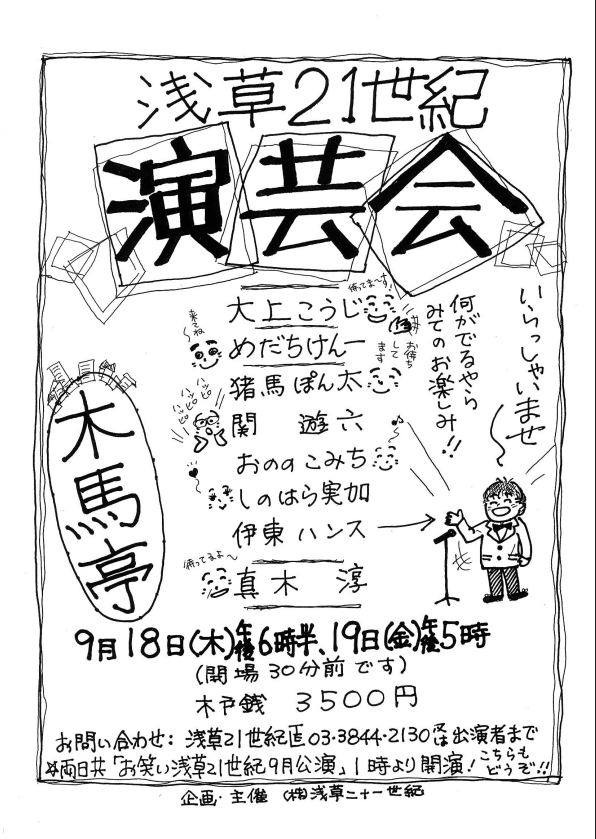 浅草21世紀
演芸会
いらっしゃいませ
何がでるやら
みてのお楽しみ!!
木馬亭
待ってま〜す!
大上こうじ
来てね
めだちけん一
お待ち
して
ます
猪馬ぽん太
ハッピ
ハッピ
ハッピ
関 遊六
おののこみち
しのはら実加
伊東ハンス
待ってまよ〜
真木 淳
9月18日(木)午後6時半、19日(金)午後5時
(開場30分前です)
木戸銭 3500円
お問い合わせ: 浅草21世紀 03・3844・2130 又は出演者まで
両日共「お笑い浅草21世紀9月公演」1時より開演! こちらも
どうぞ!!
企画・主催 (株)浅草二十一世紀